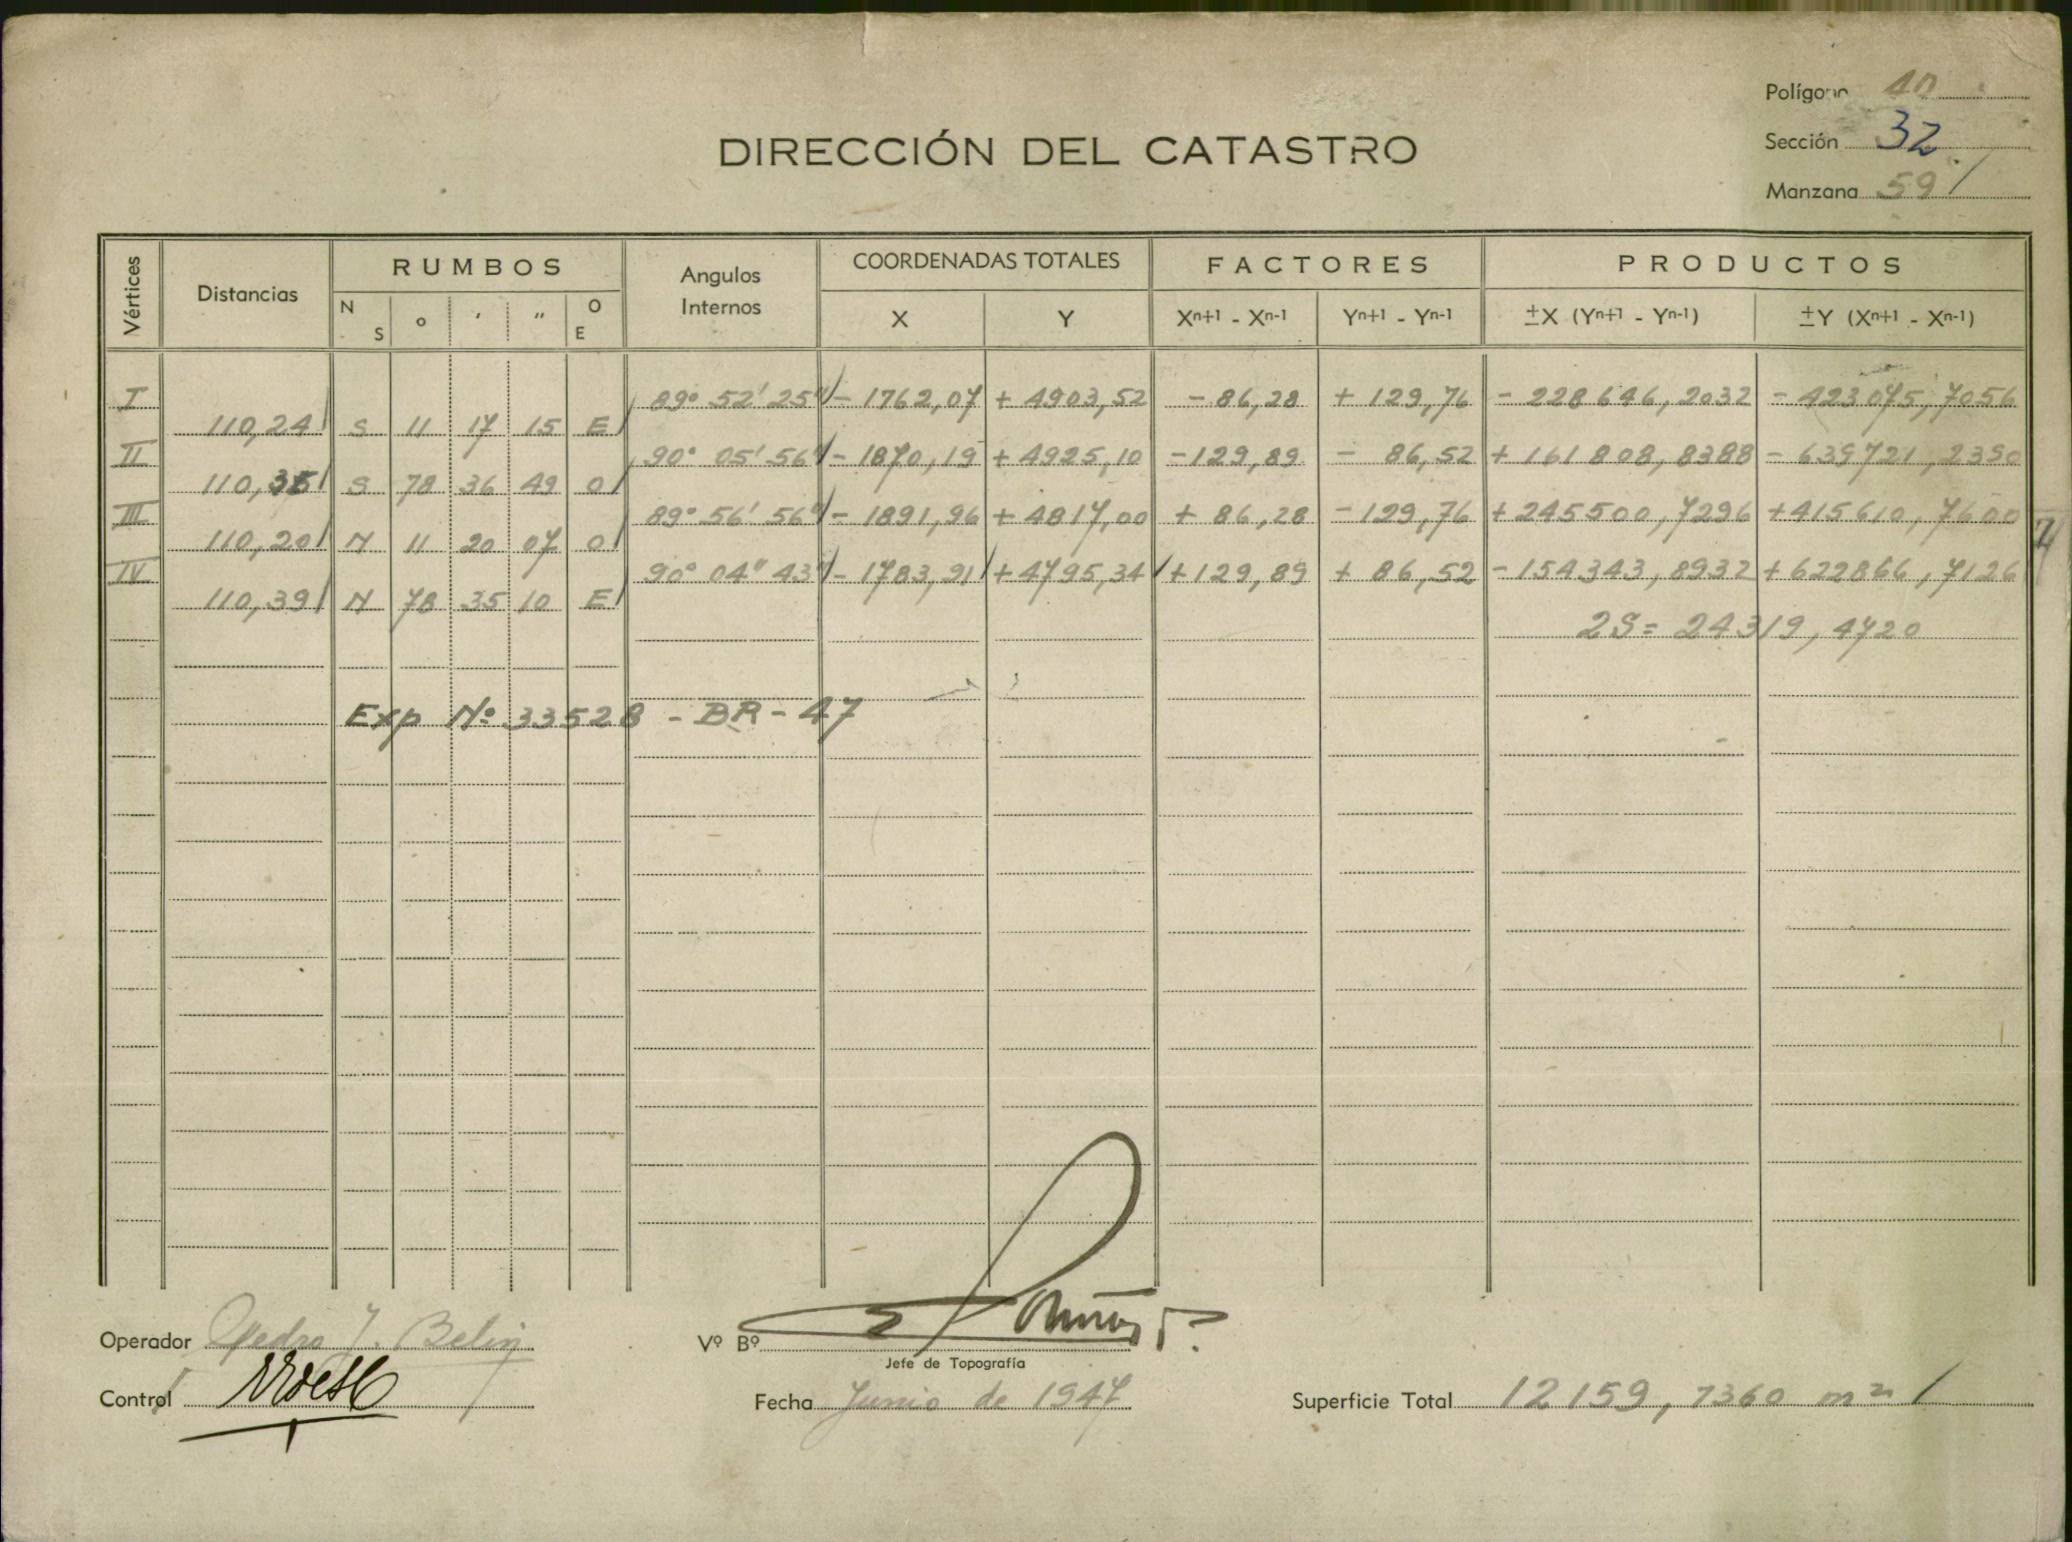 Polígono 40
DIRECCIÓN DEL CATASTRO
Sección 32
Manzana 59
Vértices Distancias RUMBOS Angulos Internos COORDENADAS TOTALES FACTORES PRODUCTOS
N S ° ' " O E X Y Xn+1 - Xn-1 Yn+1 - Yn-1 ±X (Yn+1 - Yn-1) ±Y (Xn+1 - Xn-1)
I 89° 52' 25" - 1762,07 + 4903,52 - 86,28 + 129,76 - 228646,2032 - 423075,7056
110,24 S 11 17 15 E
II 90° 05' 56" - 1870,19 + 4925,10 - 129,89 - 86,52 + 161808,8388 - 639721,2390
110,35 S 78 36 49 O
III 89° 56' 56" - 1891,96 + 4817,00 + 86,28 - 129,76 + 245500,7296 + 415610,7600
110,20 N 11 20 07 O
IV 90° 04" 43" - 1783,91 + 4795,34 + 129,89 + 86,52 - 154343,8932 + 622866,7126
110,39 N 78 35 10 E
2S = 24319,4720
Exp Nº 33528 - BR - 47
Operador Pedro J. Belin
Vº Bº
Jefe de Topografía
Control
Fecha Junio de 1947
Superficie Total 12159,7360 m²